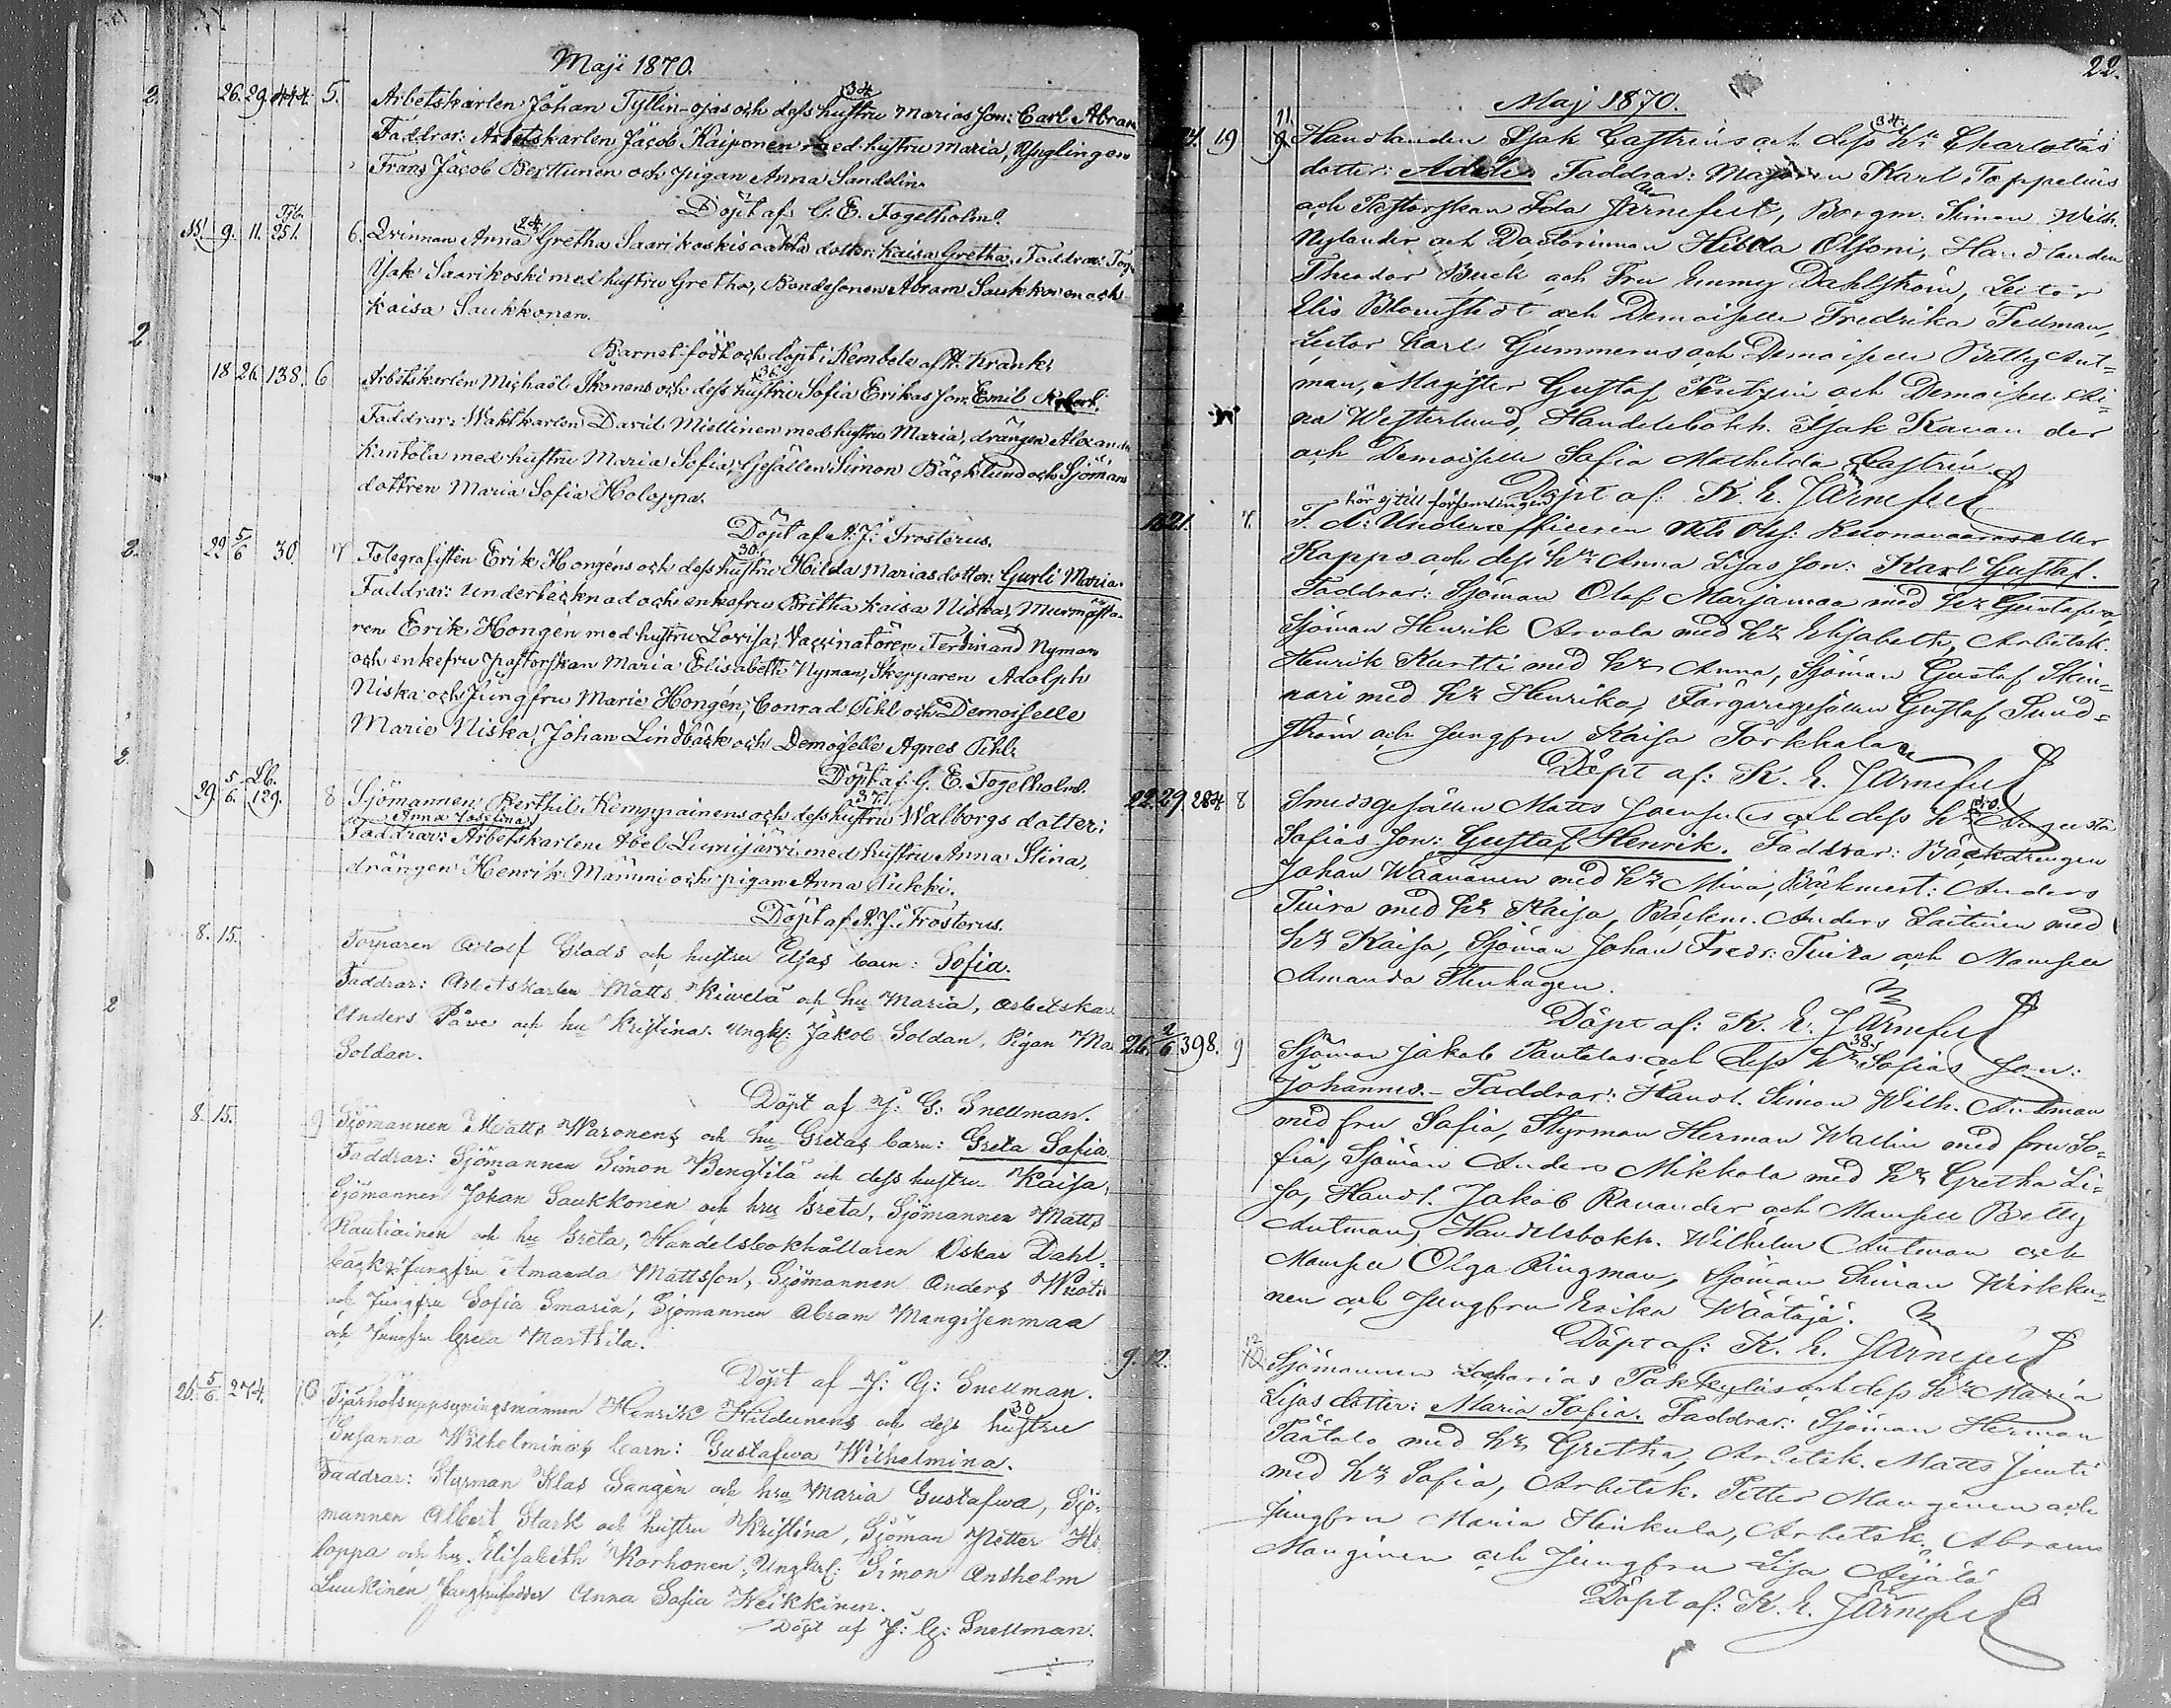 Maji 1870.
2. 26. 29. 444. 5. Arbetskarlen Johan Tyllin-ojas och dess hustru 34 Marias son: Carl Abram
Faddrar: Arbetskarlen Jacob Kaiponen med hustru Maria, Ynglingen
Frans Jacob Berttunen och pigan Anna Sandelin.
Döpt af G. E. Fogelholm.
9. 11. Tjb. 251. 6. Qvinnan Anna 24 Gretha Saarikoskis oäkta dotter: Kaisa Gretha. Faddrar: Torp.
Isak Saarikoski med hustru Gretha, Bondesonen Abram Saukkonen och
Kaisa Saukkonen.
2
Barnet födt och döpt i Kembele af H. Krank.
18 26. 138. 6 Arbetskarlen Michaël Ikonens och dess hustru 36 Sofia Erikas son: Emil Robert.
Faddrar: Waktkarlen David Miettinen med hustru Maria, drängen Alexander
Kantola med hustru Maria Sofia, Gesällen Simon Bäcklund och Sjömans
dottren Maria Sofia Holoppa.
Döpt af A. J. Frosterus.
2. 29 5/6 30. 7 Telegrafisten Erik Hongéns och dess hustru 30. Hilda Marias dotter: Gurli Maria.
Faddrar: undertecknad och enkefru Britha Kaisa Niska, Murmästa-
ren Erik Hongén med hustru Lovisa, Vaccinatören Ferdinand Nyman
och enkefru pastorskan Maria Elisabeth Nyman, Skepparen Adolph
Niska och Jungfru Marie Hongén, Conrad Pihl och Demoiselle
Marie Niska, Johan Lindbäck och Demoiselle Agnes Pihl.
2.
Döpt af: G. E. Fogelholm.
29. 5/6. Lb. 129. 8 Sjömannen Berthil Kemppainens och dess hustru 37 Walborgs dotter:
Anna Josefina
Faddrar: Arbetskarlen Abel Lumijärvi med hustru Anna Stina,
drängen Henrik Mämmi och pigan Anna Tukki.
Döpt af A. J. Frosterus.
8. 15. Torparen Adolf Grads och hustru Elsas barn: Sofia.
Faddrar: Arbetskarlen Matts Kiwelä och hu Maria, arbetskar
2 Anders Päwe och hu Kristina. Ungk: Jakob Soldan, Pigan Ma
Soldan.
Döpt af J: G: Snellman.
8. 15. 9 Sjömannen Matts Waronens och hu Gretas barn: Greta Sofia.
Faddrar: Sjömannen Simon Bengtilä och dess hustru Kaisa,
Sjömannen Johan Saukkonen och hru Greta, Sjömannen Matts
Rautiainen och hu Greta, Handelsbokhållaren Oskar Dahl-
bäck & Jungfru Amanda Mattsson, Sjömannen Anders Wuoti
och Jungfru Sofia Smarin, Sjömannen Abram Mangisenmaa
1. och Jungfru Greta Marttila.
Döpt af J: G: Snellman.
26. 5/6. 274. 10 Tjärhofsuppsyningsmannen Henrik Hildunens och dess hustru 30
Susanna Wilhelminas barn: Gustafwa Wilhelmina.
Faddrar: Styrman Klas Sangén och hru Maria Gustafwa, Sjö-
mannen Albert Stark och hustru Kristina, Sjöman Petter Ho
loppa och hu Elisabeth Korhonen, Ungkrl: Simon Ansholm
Luukinen Jungfrufadder Anna Sofia Heikkinen.
Döpt af J: G: Snellman.
22.
Maj 1870.
19 11. 9 Handlanden Isak Castréns och dess hu 34. Charlottas
dotter: Adèle. Faddrar: Majoren Karl Toppelius
och Pastorskan Ida Järnefelt, Borgm. Simon Wilh.
Nylander och Doctorinnan Hilda Olsoni, Handlanden
Theodor Buck och Fru Emmy Dahlström, Lector
Elis Blomstedt och Demoiselle Fredrika Fellman,
Lector Karl Gummerus och Demoiselle Betty Ant-
man, Magister Gustaf Pentzin och Demoiselle
na Westerlund, Handelsbokh. Isak Ravander
och Demoiselle Sofia Mathilda Castrén.
Döpt af: K. E. Järnefelt
hör ej till församlingen
21. 7. F. d. Underofficeren Nils Olof: Kuonavaaras eller
Rappo och dess hu Anna Lisas son: Karl Gustaf.
Faddrar: Sjöman Olof Marjamaa med hu Gustafva,
Sjöman Henrik Arvola med hu Elisabeth, Arbetsk.
Henrik Kurtti med hu Anna, Sjöman Gustaf Skin-
nari med hu Henrika, Färgaregesällen Gustaf Sund-
ström och Jungfru Kaisa Torkkola.
Döpt af: K. E. Järnefelt
22. 29. 284. 8 Smedsgesällen Matts och dess hu 30. Augusta
Sofias son: Gustaf Henrik. Faddrar: Bäckdrengen
Johan Wäänänen med hu Mina, Bäckmest: Anders
Tuira med hu Kaisa, Bäckm. Anders Laitinen med
hu Kaisa, Sjöman Johan Fredr: Tuira och Mamsell
Amanda Stenhagen.
Döpt af: K. E. Järnefelt
26. 2/6 398. 9 Sjöman Jakob Pantolas och dess hu 38. Sofias son:
Johannes.- Faddrar: Handl. Simon Wilh. Antman
med fru Sofia, Styrman Herman Wallin med fru So-
fia, Sjöman Anders Mikkola med hu Gretha Li-
sa, Handl. Jakob Ravander och Mamsell Betty
Antman, Handelsbokh. Wilhelm Antman och
Mamsell Olga Ringman, Sjöman Simon Wirkku-
nen och Jungfru Erika Wäätäjä.
Döpt af: K. E. Järnefelt
9. 12. 12 10 Sjömannen Zacharias Pakkyläs och dess hu Maria
Lisas dotter: Maria Sofia. Faddrar: Sjöman Herman
Päätalo med hu Gretha, Arbetsk. Matts Junti
med hu Sofia, Arbetsk. Petter Manginen och
Jungfru Maria Hinkula, Arbetsk. Abram
Manginen och Jungfru Lisa Äijälä
Döpt af: K. E. Järnefelt